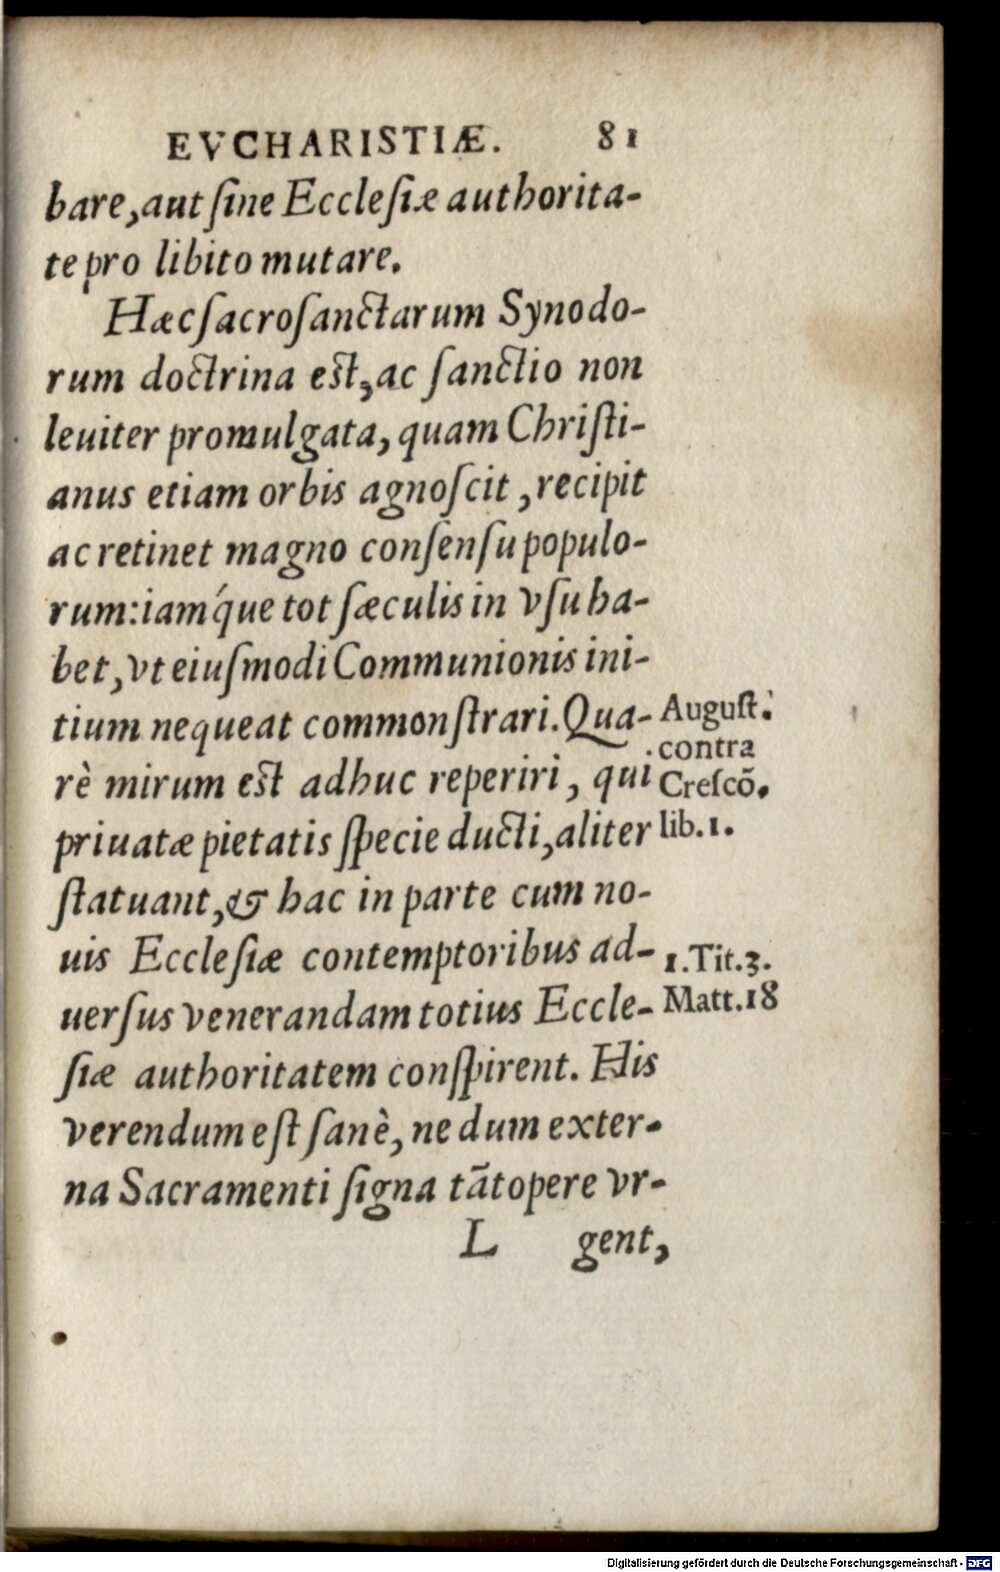 EVCHARISTIÆ. 81
bare, aut ſine Eccleſiæ authorita-
te pro libito mutare.
Hæc ſacroſanctarum Synodo-
rum doctrina est, ac ſanctio non
leuiter promulgata, quam Chriſti-
anus etiam orbis agnoſcit, recipit
ac retinet magno conſenſu populo-
rum: iamq́ue tot ſæculis in vſu ha-
bet, vt eiuſmodi Communionis ini-
tium nequeat commonſtrari. Qua-
rè mirum est adhuc reperiri, qui
priuatæ pietatis ſpecie ducti, aliter
ſtatuant, & hac in parte cum no-
uis Eccleſiæ contemptoribus ad-
uerſus venerandam totius Eccle-
ſiæ authoritatem conſpirent. His
verendum eſt ſanè, ne dum exter-
na Sacramenti ſigna tãtopere vr-
L gent,
Auguſt.
contra
Creſcō.
lib. 1.
1. Tit. 3.
Matt. 18
Digitalisierung gefördert durch die Deutsche Forschungsgemeinschaft - DFG